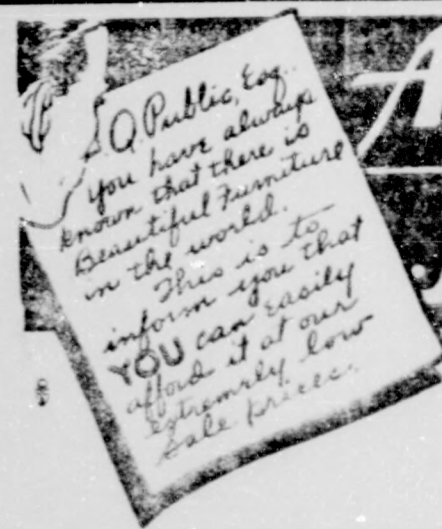 J.Q. Public, Esq.
You have always
known that there is
Beautiful Furniture
in the world.
This is to
inform you that
YOU can easily
afford it at our
extremely low
sale prices.